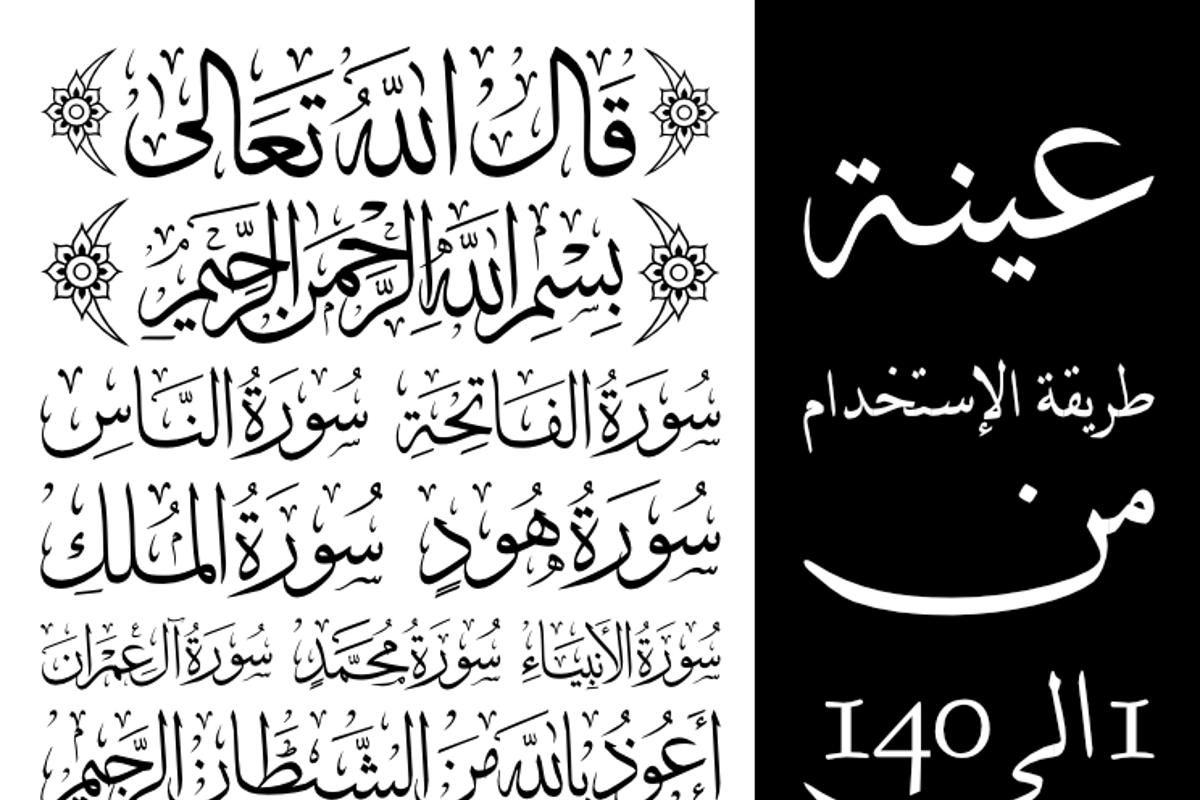 قَالَ اللَّهُ تَعَالى
بِسْمِ اللَّهِ الرَّحْمنِ الرَّحِيمِ
سُورَةُ الفَاتِحَةِ سُورَةُ النَّاسِ
سُورَةُ هُودٍ سُورَةُ المُلكِ
سُورَةُ الأَنبِيَاءِ سُورَةُ مُحَمَّدٍ سُورَةُ آلِ عِمْرَان
أَعُوذُ بِاللَّهِ مِنَ الشَّيْطَانِ الرَّجِيمِ
عينة
طريقة الإستخدام
من
1 الى 140